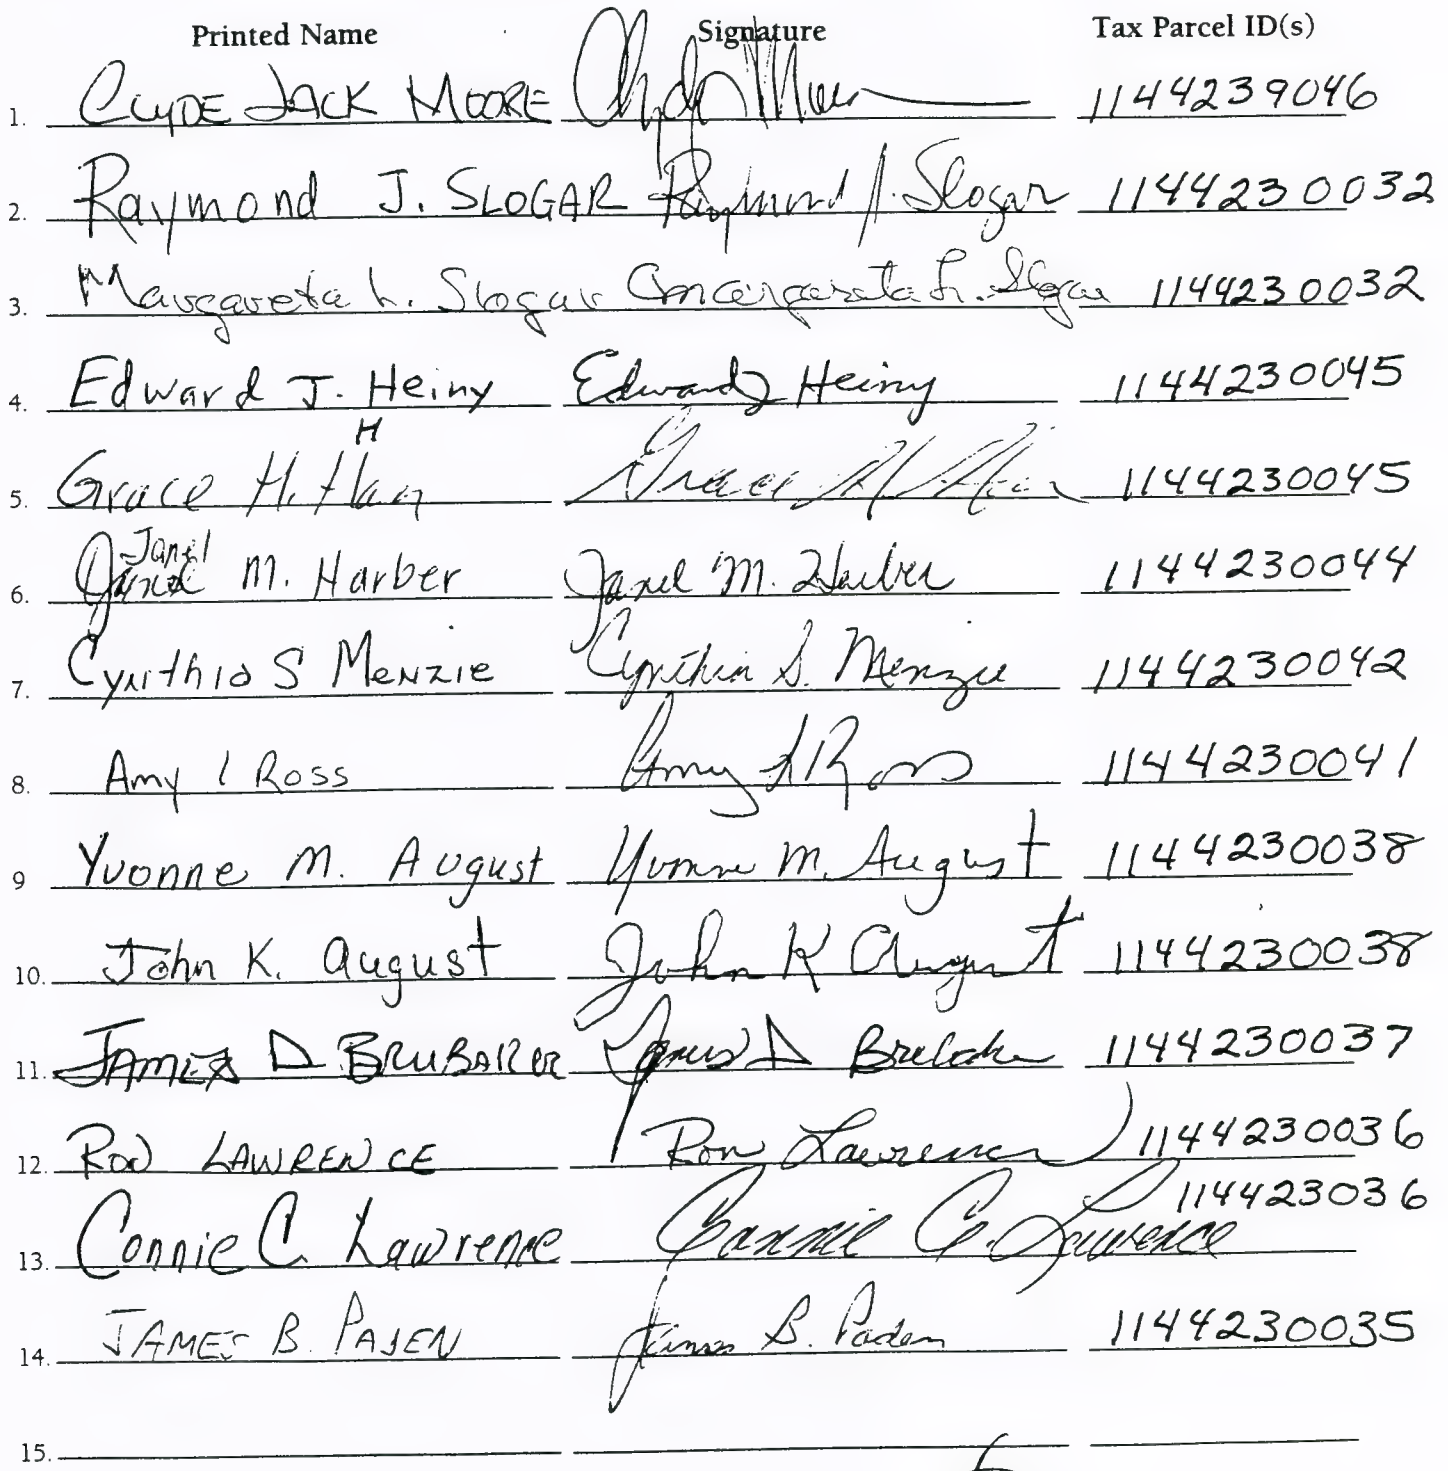 Printed Name Signature Tax Parcel ID(s)
1. CLYDE JACK MOORE Clyde Moore 1144239046
2. Raymond J. SLOGAR Raymond J. Slogar 1144230032
3. Margareta L. Slogar Margareta L. Slogar 1144230032
4. Edward J. Heiny Edward J Heiny 1144230045
H
5. Grace H. Grace H 1144230045
Janel
6. M. Harber Janel M. Harber 1144230044
7. Cynthia S Menzie Cynthia S. Menzie 1144230042
8. Amy L Ross Amy L Ross 1144230041
9 Yvonne M. August Yvonne M. August 1144230038
10. John K. August John K August 1144230038
11. JAMES D BRUBAKER James D Brubaker 1144230037
12. RON LAWRENCE Ron Lawrence 1144230036
13. Connie C. Lawrence Connie C. Lawrence 114423036
14. JAMES B. PADEN James B. Paden 1144230035
15.